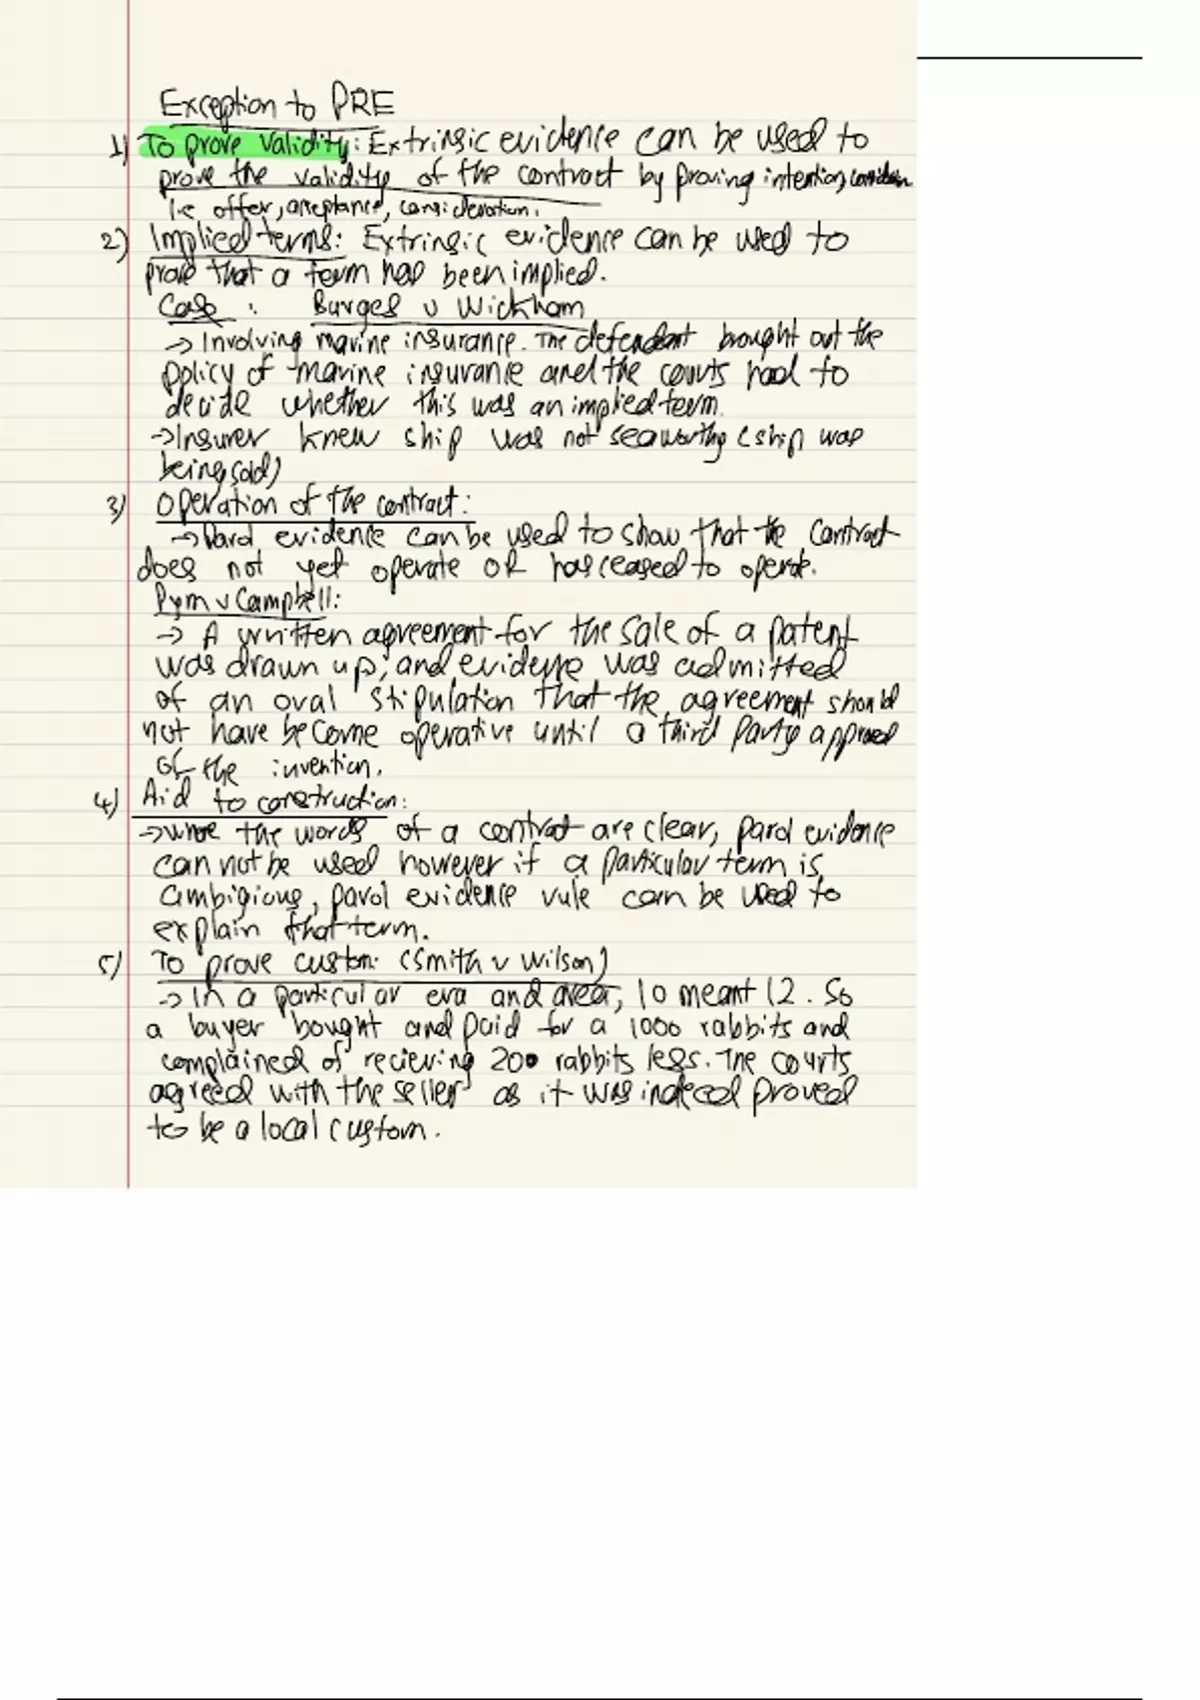 Exception to PRE
1) To prove validity: Extrinsic evidence can be used to
prove the validity of the contract by proving intention,
i.e offer, acceptance, consideration.
2) Implied terms: Extrinsic evidence can be used to
prove that a term had been implied.
Case: Burges v Wickham
→ Involving marine insurance. The defendant brought out the
policy of marine insurance and the courts had to
decide whether this was an implied term.
→ Insurer knew ship was not seaworthy (ship was
being sold)
3) Operation of the contract:
→ Parol evidence can be used to show that the contract
does not yet operate OR has ceased to operate.
Pym v Campbell:
→ A written agreement for the sale of a patent
was drawn up, and evidence was admitted
of an oral stipulation that the agreement should
not have become operative until a third party approved
of the invention.
4) Aid to construction:
→ where the words of a contract are clear, parol evidence
can not be used however if a particular term is
ambigious, parol evidence rule can be used to
explain that term.
5) To prove custom: (Smith v Wilson)
→ In a particular era and area, 10 meant 12. So
a buyer bought and paid for a 1000 rabbits and
complained of recieving 200 rabbits less. The courts
agreed with the seller as it was indeed proved
to be a local custom.